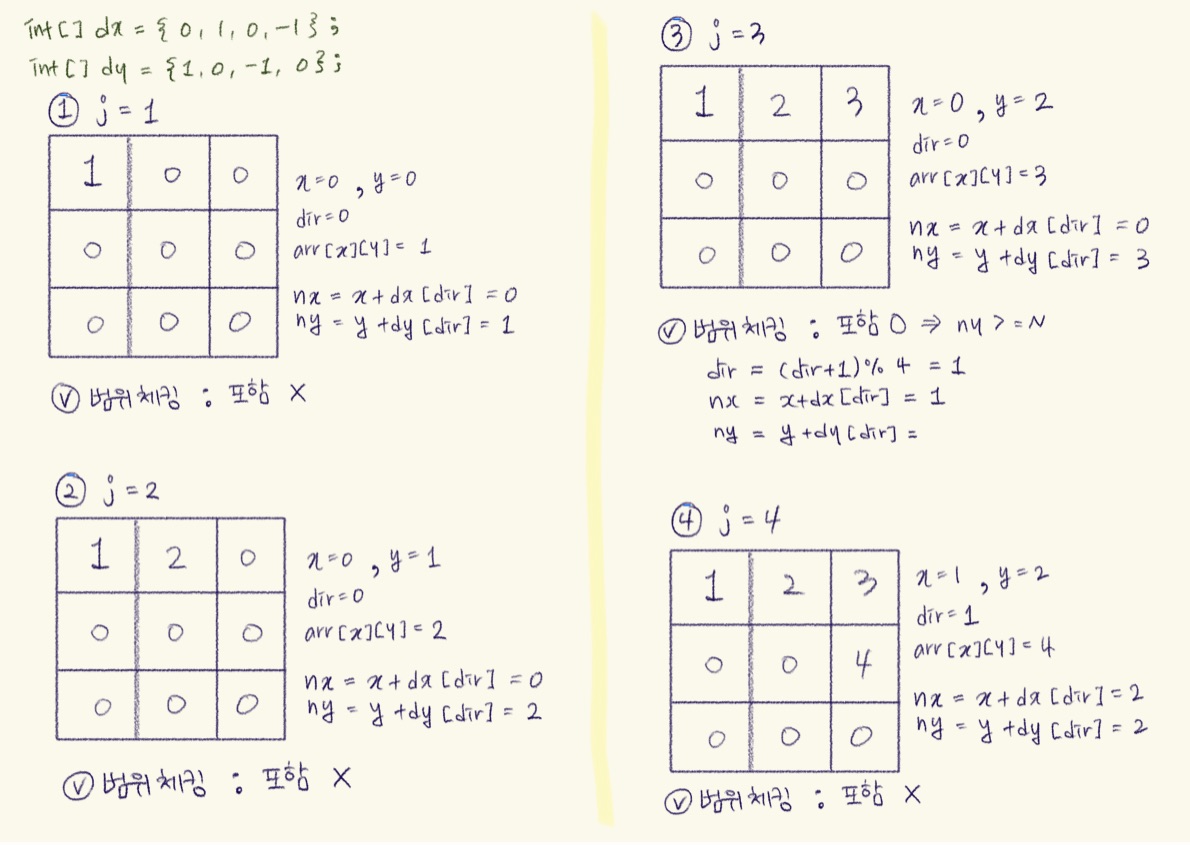 int[] dx = { 0, 1, 0, -1 };
int[] dy = {1, 0, -1, 0};
① j = 1
1 0 0
0 0 0
0 0 0
x=0 , y=0
dir=0
arr[x][y] = 1
nx = x+dx[dir] = 0
ny = y+dy[dir] = 1
Ⓥ 범위체킹 : 포함 X
② j = 2
1 2 0
0 0 0
0 0 0
x=0 , y=1
dir=0
arr[x][y] = 2
nx = x+dx[dir] = 0
ny = y+dy[dir] = 2
Ⓥ 범위체킹 : 포함 X
③ j = 3
1 2 3
0 0 0
0 0 0
x=0 , y=2
dir=0
arr[x][y] = 3
nx = x+dx[dir] = 0
ny = y+dy[dir] = 3
Ⓥ 범위체킹 : 포함 O ⇒ ny >= N
dir = (dir+1)% 4 = 1
nx = x+dx[dir] = 1
ny = y+dy[dir] =
④ j = 4
1 2 3
0 0 4
0 0 0
x=1 , y=2
dir=1
arr[x][y] = 4
nx = x+dx[dir] = 2
ny = y+dy[dir] = 2
Ⓥ 범위체킹 : 포함 X